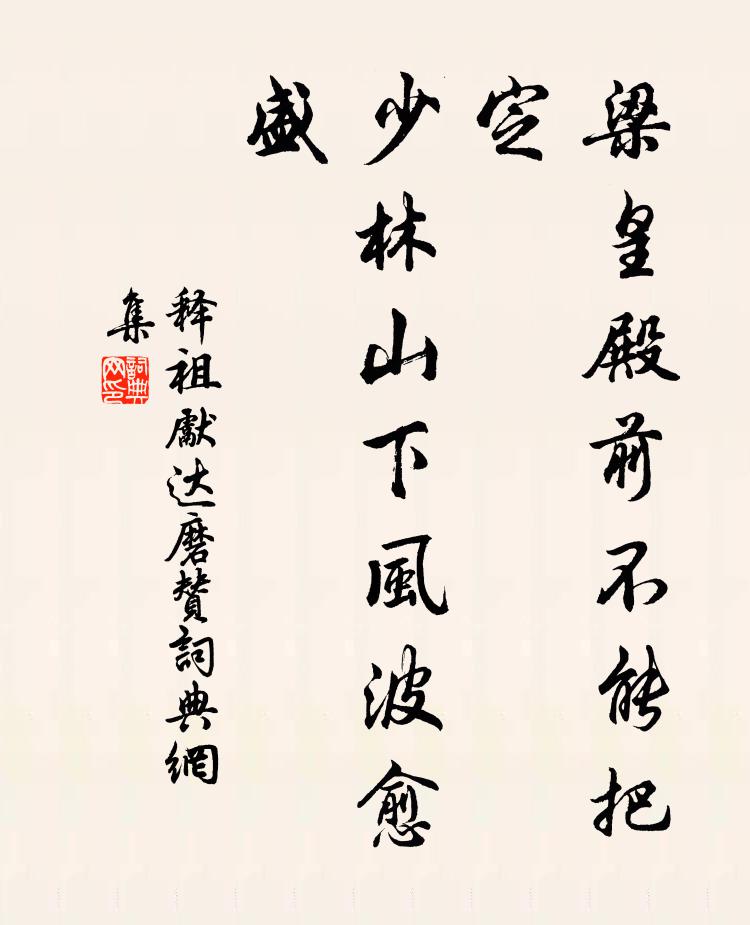 梁皇殿前不能把
定
少林山下風波愈
盛
释祖獻达磨賛詞典網
集
詞典
网印